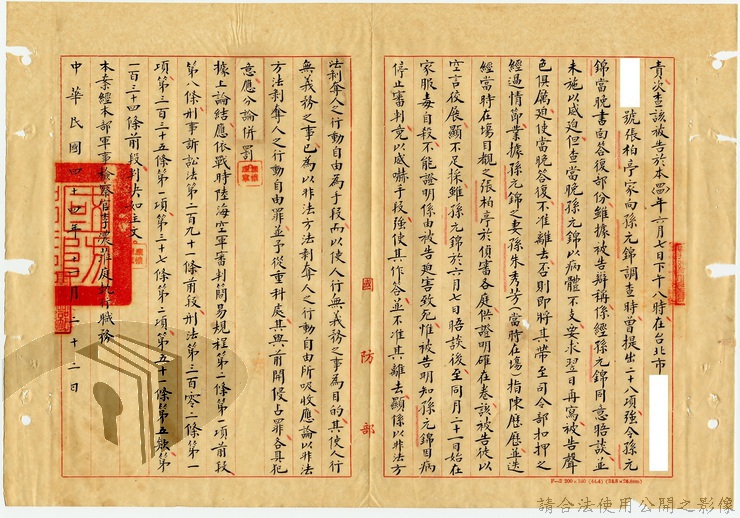 責次查該被告於本四十年六月七日下午八時在台北市
號張柏亭家向孫元錦調查時曾提出二十八項強令孫元
錦當晚書面答復部份雖據被告辯稱係經孫元錦同意晤談並
未施以威迫但查當晚孫元錦以病體不支要求翌日再寫被告聲
色俱厲迫使當晚答復不准離去否則即將其帶至司令部扣押之
經過情節業據孫元錦之妻孫朱秀芳(當時在場)指陳歷歷並迭
經當時在場目覩之張柏亭於偵審各庭供證明確在卷該被告徒以
空言狡展顯不足採雖孫元錦於六月七日晤談後至同月二十一日始在
家服毒自殺不能證明係由被告迫害致死惟被告明知孫元錦因病
停止審判竟以威嚇手段強使其作答並不准其離去顯係以非法方
國防部
法剝奪人之行動自由為手段而以使人行無義務之事為目的其使人行
無義務之事已為以非法方法剝奪人之行動自由所吸收應論以非法
方法剝奪人之行動自由罪並予從重科處其與前開侵占罪各具犯
意應分論併罰
據上論結應依戰時陸海空軍審判簡易規程第二條第一項前段
第八條刑事訴訟法第二百九十一條前段刑法第三百零二條第一
項第三百三十五條第一項第三十七條第二項第五十一條第五款第
一百三十四條前段判決如主文
本案經本部軍事檢察官李濃蒞庭執行職務
中華民國四十四年十二月二十二日
請合法使用公開之影像